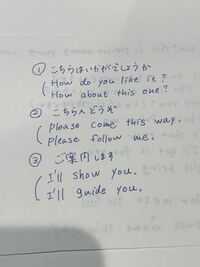 ① こちらはいかがでしょうか
How do you like it?
How about this one?
② こちらへどうぞ
please come this way.
Please follow me.
③ ご案内します
I'll show you.
I'll guide you.